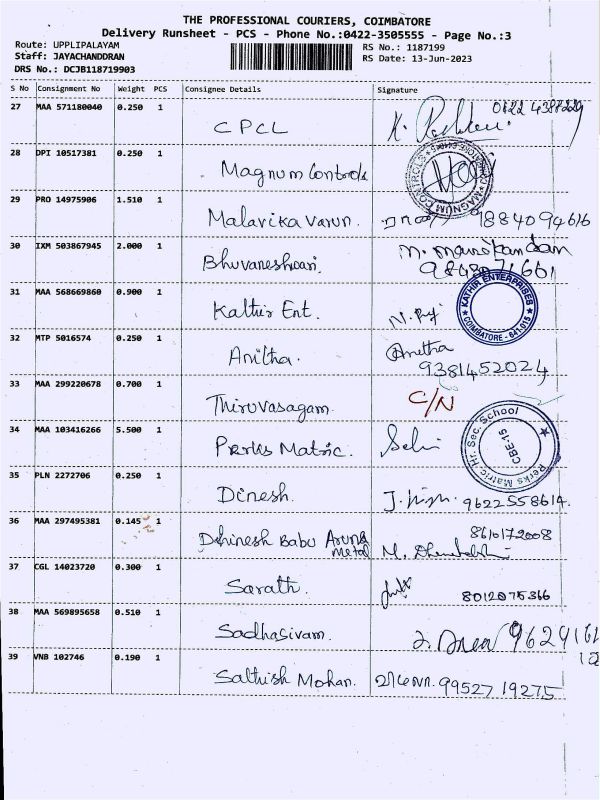 THE PROFESSIONAL COURIERS, COIMBATORE
Delivery Runsheet - PCS - Phone No.:0422-3505555 - Page No.:3
Route: UPPLIPALAYAM RS No.: 1187199
Staff: JAYACHANDDRAN RS Date: 13-Jun-2023
DRS No.: DCJB118719903
S No Consignment No Weight PCS Consignee Details Signature
27 MAA 571180040 0.250 1 CPCL
28 DPI 10517381 0.250 1 Magnum Controls MAGNUM CONTROLS
29 PRO 14975906 1.510 1 Malavika Varun.
30 IXM 503867945 2.000 1 Bhuvaneshwari. M. Manikandan
31 MAA 568669860 0.900 1 Kathir Ent. KATHIR ENTERPRISES COIMBATORE - 641 015
32 MTP 5016574 0.250 1 Anitha. Anetha
9381452024
33 MAA 299220678 0.700 1 Thiruvasagam C/N
34 MAA 103416266 5.500 1 Perks Matric. Selvi Perks Matric Hr. Sec. School CBE-15
35 PLN 2272706 0.250 1 Dinesh. 9622558614.
36 MAA 297495381 0.145 1 Dhinesh Babu Aruna Metal 8610172008
37 CGL 14023720 0.300 1 Sarath. 8012075366
38 MAA 569895658 0.510 1 Sadhasivam.
39 VNB 102746 0.190 1 Sathish Mohan. 99527 19275